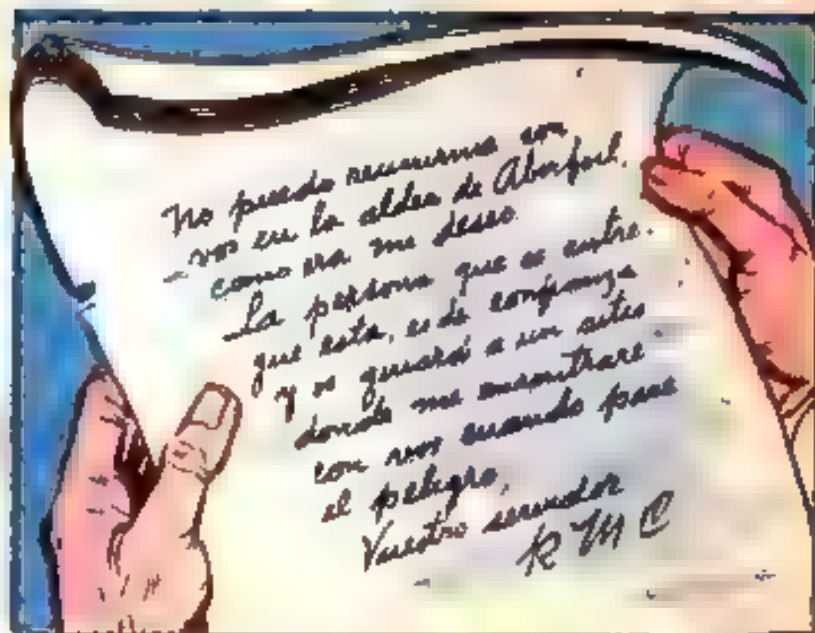 No puedo reunirme con
vos en la aldea de Aberfoil,
como era mi deseo.
La persona que os entre-
gue esta, es de confianza
y os guiará a un sitio
donde me encontraré
con vos cuando pase
el peligro,
Vuestro servidor
R M C